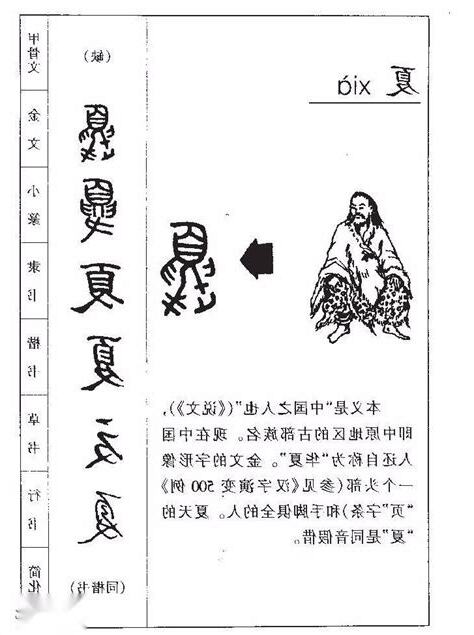 夏 xià
本义是“中国之人也”(《说文》),
即中原地区的古部族名。现在中国
人还自称为“华夏”。金文的字形像
一个头部(参见《汉字演变 500 例》
“页”字条)和手脚俱全的人。夏天的
“夏”是同音假借。
甲骨文 (缺)
金文 夏
小篆 夏
隶书 夏
楷书 夏
草书 夏
行书 夏
简化 (同楷书)